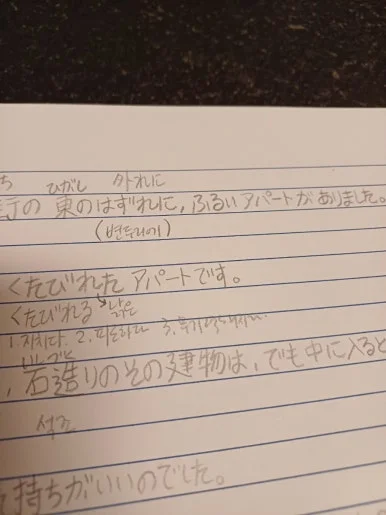 ち ひがし 外れに
町の 東のはずれに, ふるいアパートがありました。
(변두리에)
くたびれたアパートです。
くたびれる 낡은
1.지치다. 2.피로하다 3.
石造りのその建物は, でも中に入ると
석조
持ちがいいのでした。